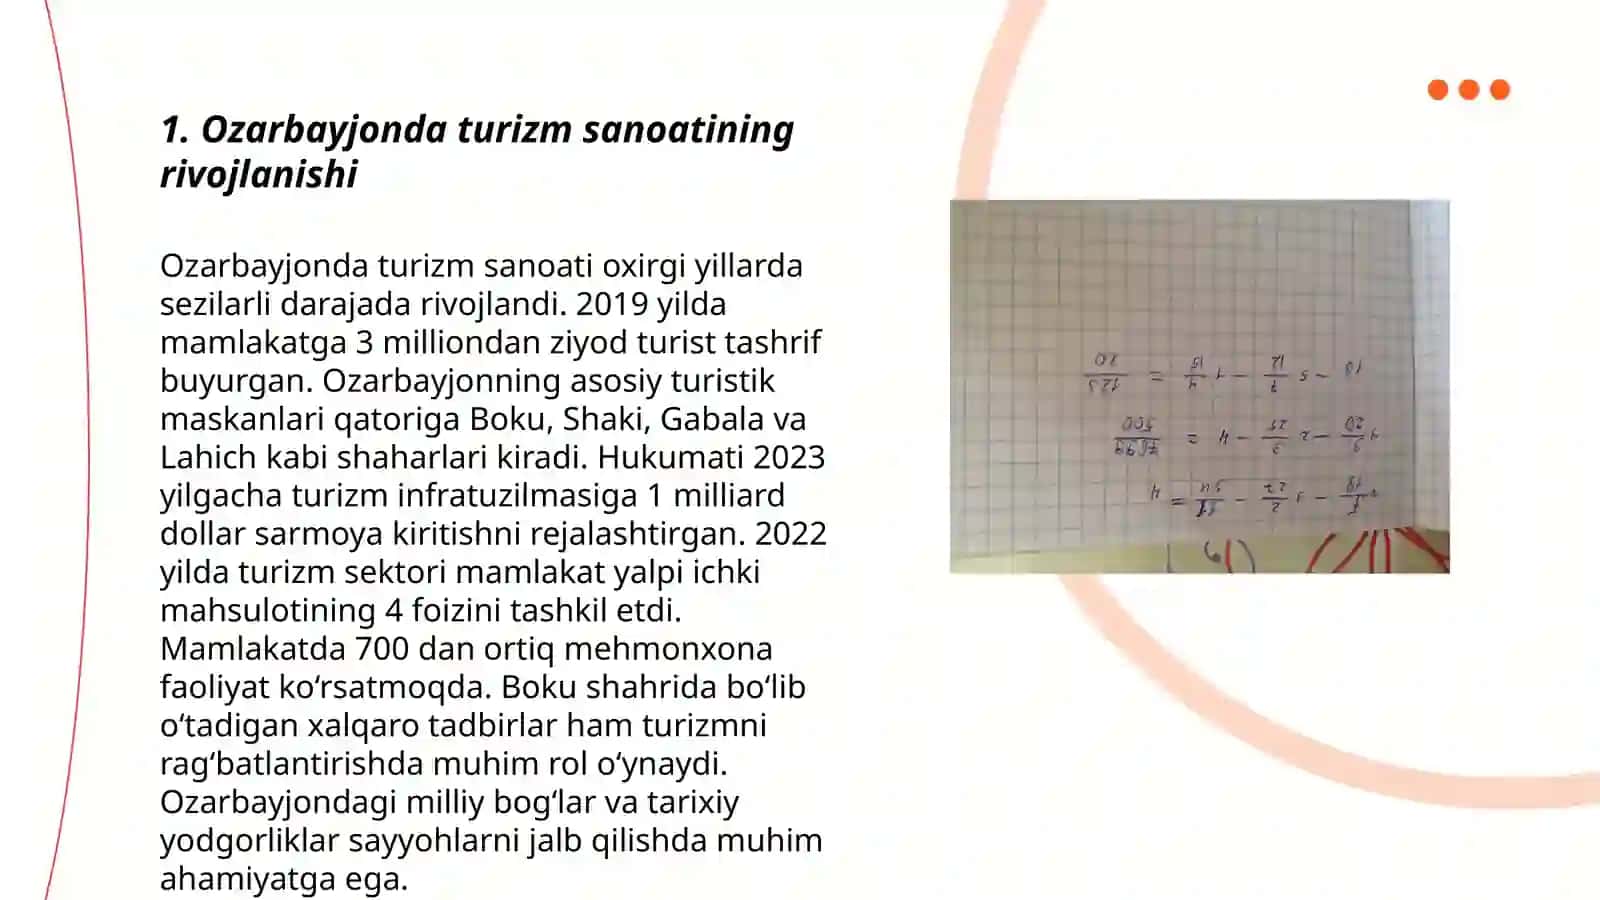 1. Ozarbayjonda turizm sanoatining
rivojlanishi
Ozarbayjonda turizm sanoati oxirgi yillarda
sezilarli darajada rivojlandi. 2019 yilda
mamlakatga 3 milliondan ziyod turist tashrif
buyurgan. Ozarbayjonning asosiy turistik
maskanlari qatoriga Boku, Shaki, Gabala va
Lahich kabi shaharlari kiradi. Hukumati 2023
yilgacha turizm infratuzilmasiga 1 milliard
dollar sarmoya kiritishni rejalashtirgan. 2022
yilda turizm sektori mamlakat yalpi ichki
mahsulotining 4 foizini tashkil etdi.
Mamlakatda 700 dan ortiq mehmonxona
faoliyat ko‘rsatmoqda. Boku shahrida bo‘lib
o‘tadigan xalqaro tadbirlar ham turizmni
rag‘batlantirishda muhim rol o‘ynaydi.
Ozarbayjondagi milliy bog‘lar va tarixiy
yodgorliklar sayyohlarni jalb qilishda muhim
ahamiyatga ega.